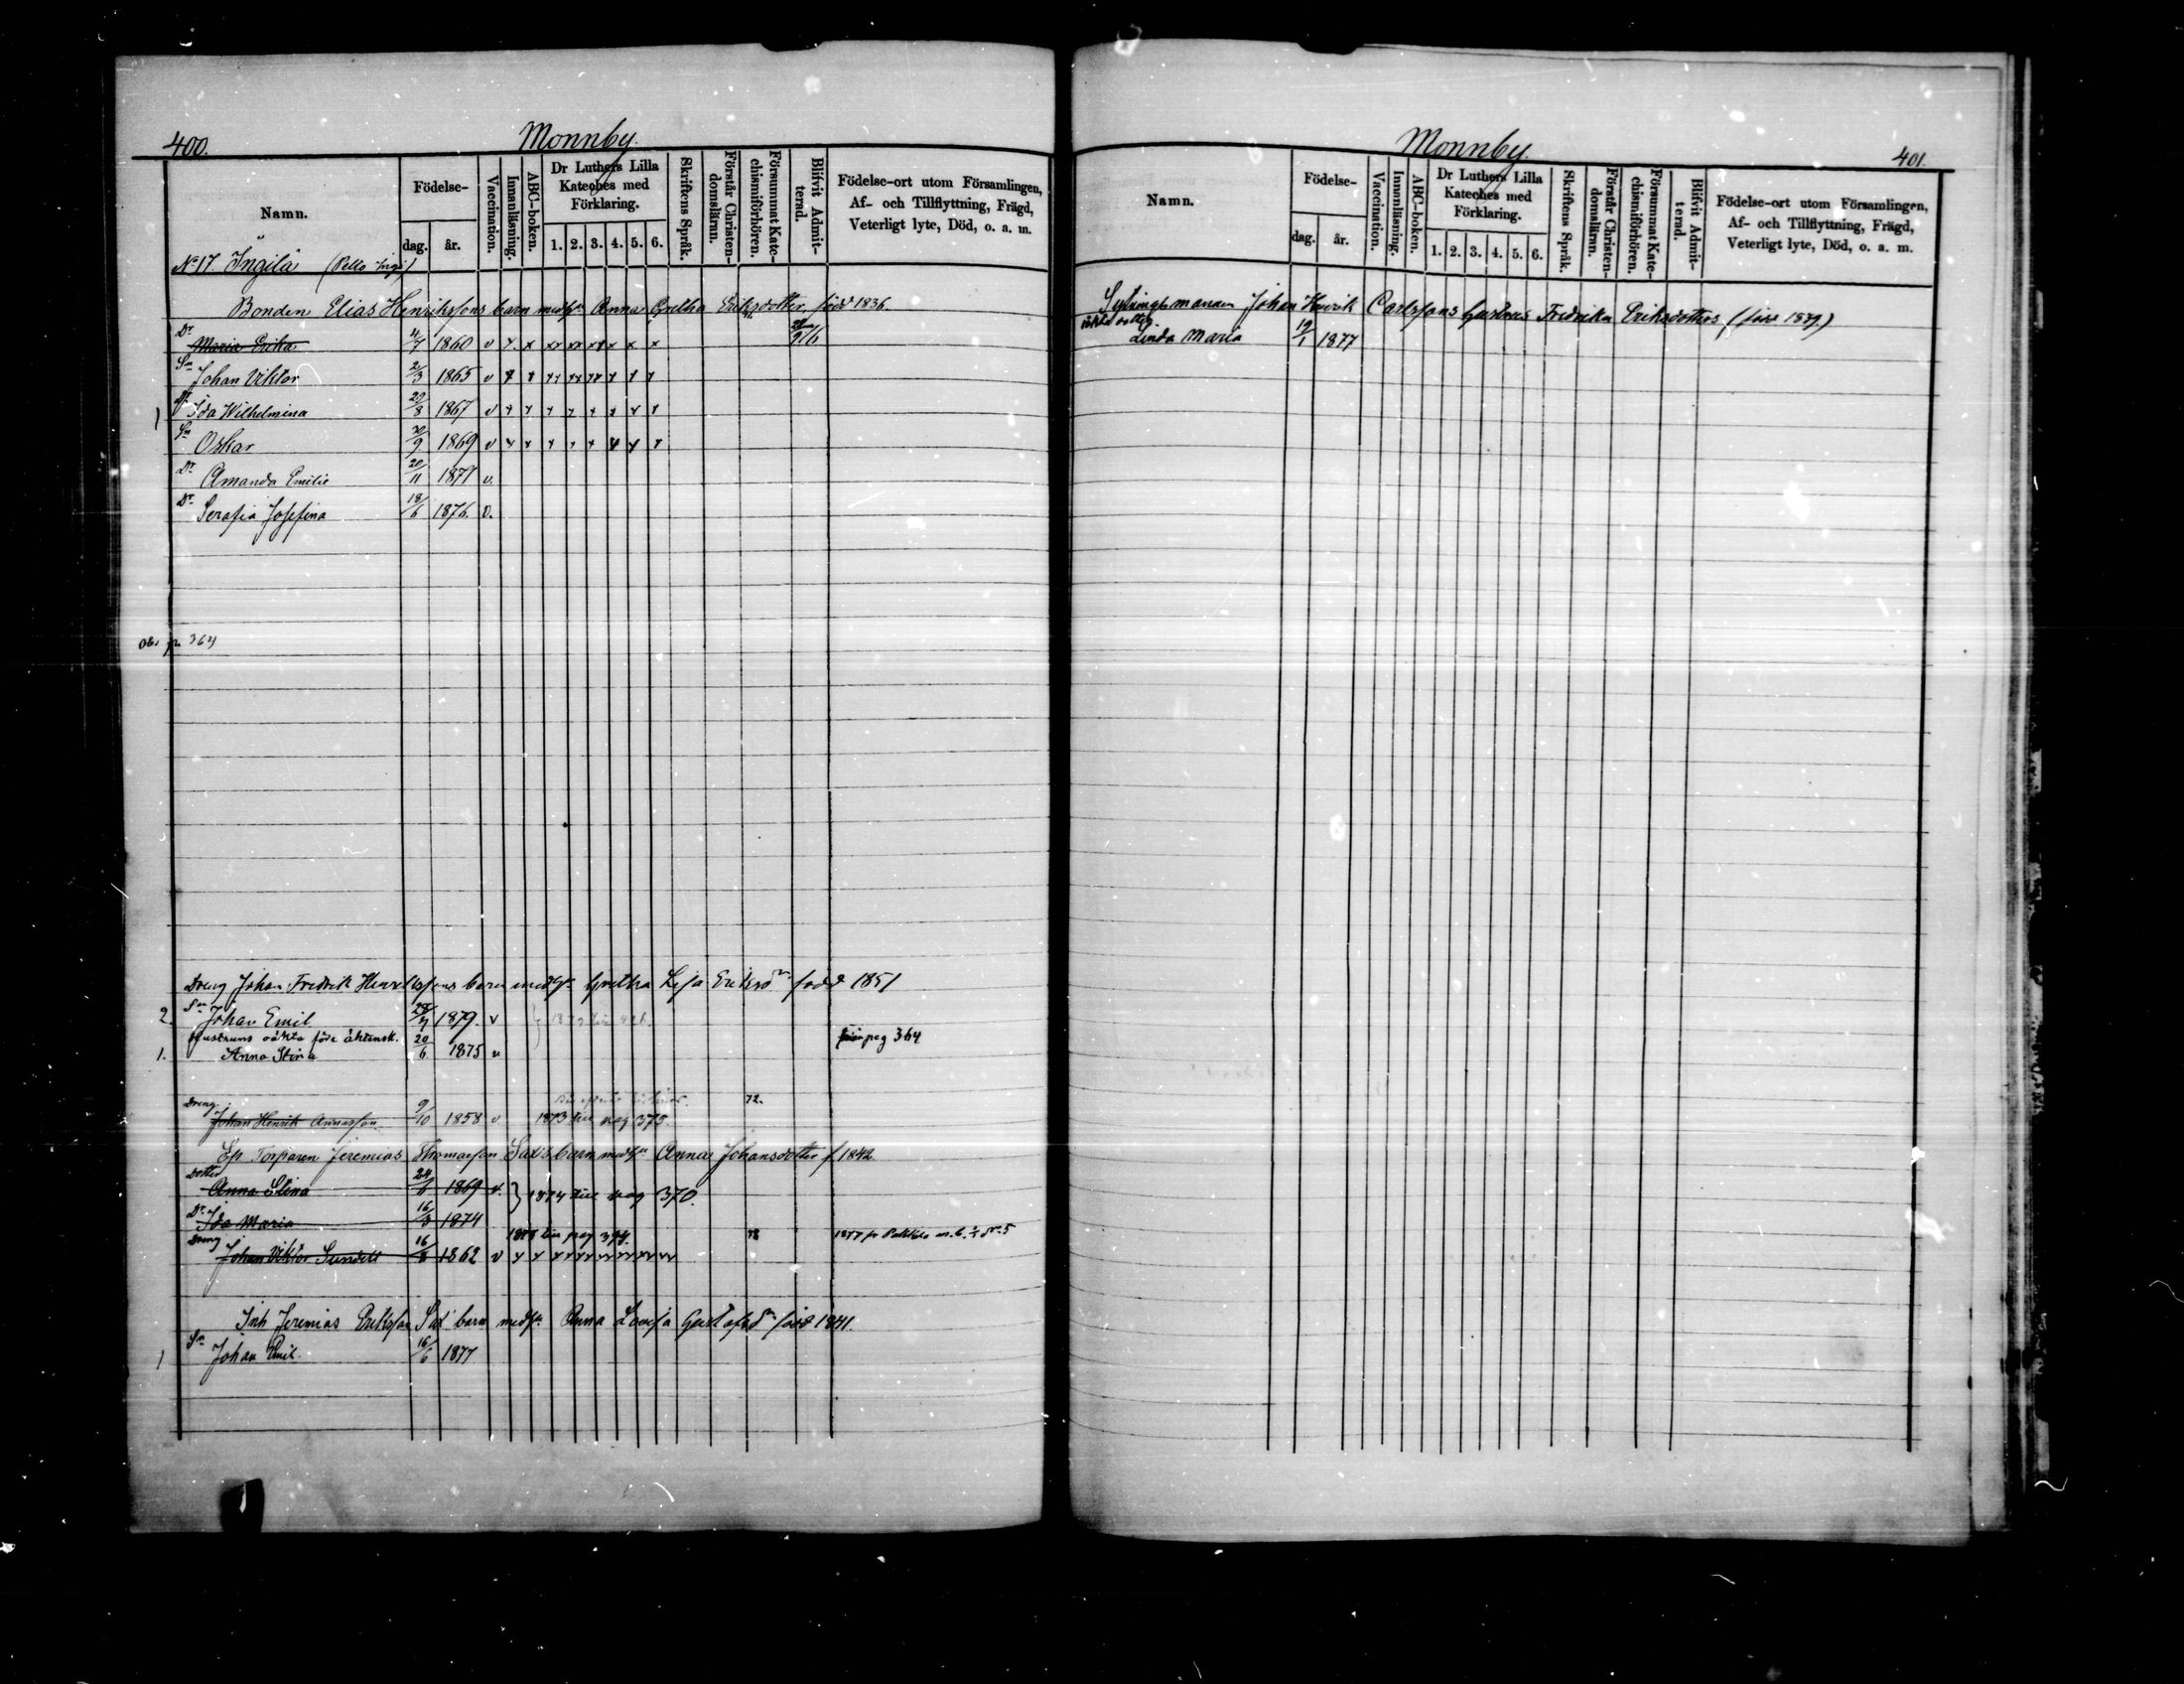 400.
Monnby.
Namn.
Födelse-
dag.
år.
Vaccination.
Innanläsning.
ABC-boken.
Dr Luthers Lilla
Kateches med
Förklaring.
1. 2. 3. 4. 5. 6.
Skriftens Språk.
Förstår Christen-
domsläran.
Försummat Kate-
chismiförhören.
Blifvit Admit-
terad.
Födelse-ort utom Församlingen,
Af- och Tillflyttning, Frägd,
Veterligt lyte, Död, o. a. m.
No 17 Ingilä (Pello Ingi)
Bonden Elias Henrikssons barn med hu Anna Gretha Eriksdotter, född 1836.
Dr Maria Erika 4/7 1860 v x x xx xx xx x x x
Sn Johan Viktor 2/3 1865 v x x xx xx xx x x x
1 Dr Ida Wilhelmina 29/8 1867 v x x x x x x x x
Sn Oskar 30/9 1869 v x x x x x x x x
Dr Amanda Emilie 20/11 1871 v.
Dr Serafia Josefina 18/6 1876. v.
364
Dreng Johan Fredrik Henrikssons barn med hu Gretha Lisa Eriksdr född 1851
2. Sn Johan Emil 1879. v
Hustruns oäkta före äktensk. 20/6
1. Anna Stina 1875 v pag 364
Dreng 72.
Johan Henrik Annasson 9/10 1858 v 1873 till pag 375.
Torparen Jeremias Thomasson Sax's barn med hu Anna Johansdotter f. 1842.
Dotter Anna Stina 24/6 1869 v. } 1874 till pag 370.
Dr Ida Maria 16/3 1874
Dreng 78
Johan Viktor Sundell 16/8 1862 v x x xx xx xx xx xx xx
Inh Jeremias Eriksson Sax' barn med hu Anna Lovisa Gustafsdr född 1841.
1 Sn Johan Emil. 16/6 1877
Monnby.
401.
Namn.
Födelse-
dag.
år.
Vaccination.
Innanläsning.
ABC-boken.
Dr Luthers Lilla
Kateches med
Förklaring.
1. 2. 3. 4. 5. 6.
Skriftens Språk.
Förstår Christen-
domsläran.
Försummat Kate-
chismiförhören.
Blifvit Admit-
terad.
Födelse-ort utom Församlingen,
Af- och Tillflyttning, Frägd,
Veterligt lyte, Död, o. a. m.
Sytningsmannen Johan Henrik Carlssons hustrus Fredrika Eriksdotters
oäkta dotter
Linda Maria 19/1 1877